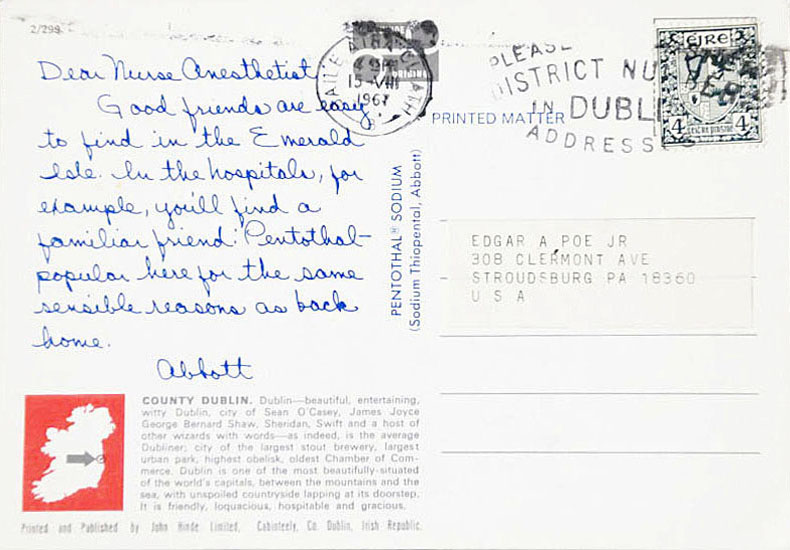 2/299
Dear Nurse Anesthetist:
Good friends are easy
to find in the Emerald
Isle. In the hospitals, for
example, you'll find a
familiar friend: Pentothal—
popular here for the same
sensible reasons as back
home.
Abbott
COUNTY DUBLIN. Dublin—beautiful, entertaining,
witty Dublin, city of Sean O'Casey, James Joyce
George Bernard Shaw, Sheridan, Swift and a host of
other wizards with words—as indeed, is the average
Dubliner; city of the largest stout brewery, largest
urban park, highest obelisk, oldest Chamber of Com-
merce. Dublin is one of the most beautifully-situated
of the world's capitals, between the mountains and the
sea, with unspoiled countryside lapping at its doorstep.
It is friendly, loquacious, hospitable and gracious.
Printed and Published by John Hinde Limited, Cabinteely, Co. Dublin, Irish Republic.
PENTOTHAL® SODIUM
(Sodium Thiopental, Abbott)
BAILE ÁTHA CLIATH
15 VIII
1967
PRINTED MATTER
PLEASE
DISTRICT NU
IN DUBL
ADDRESS
éire
4 4
EDGAR A POE JR
308 CLERMONT AVE
STROUDSBURG PA 18360
U S A